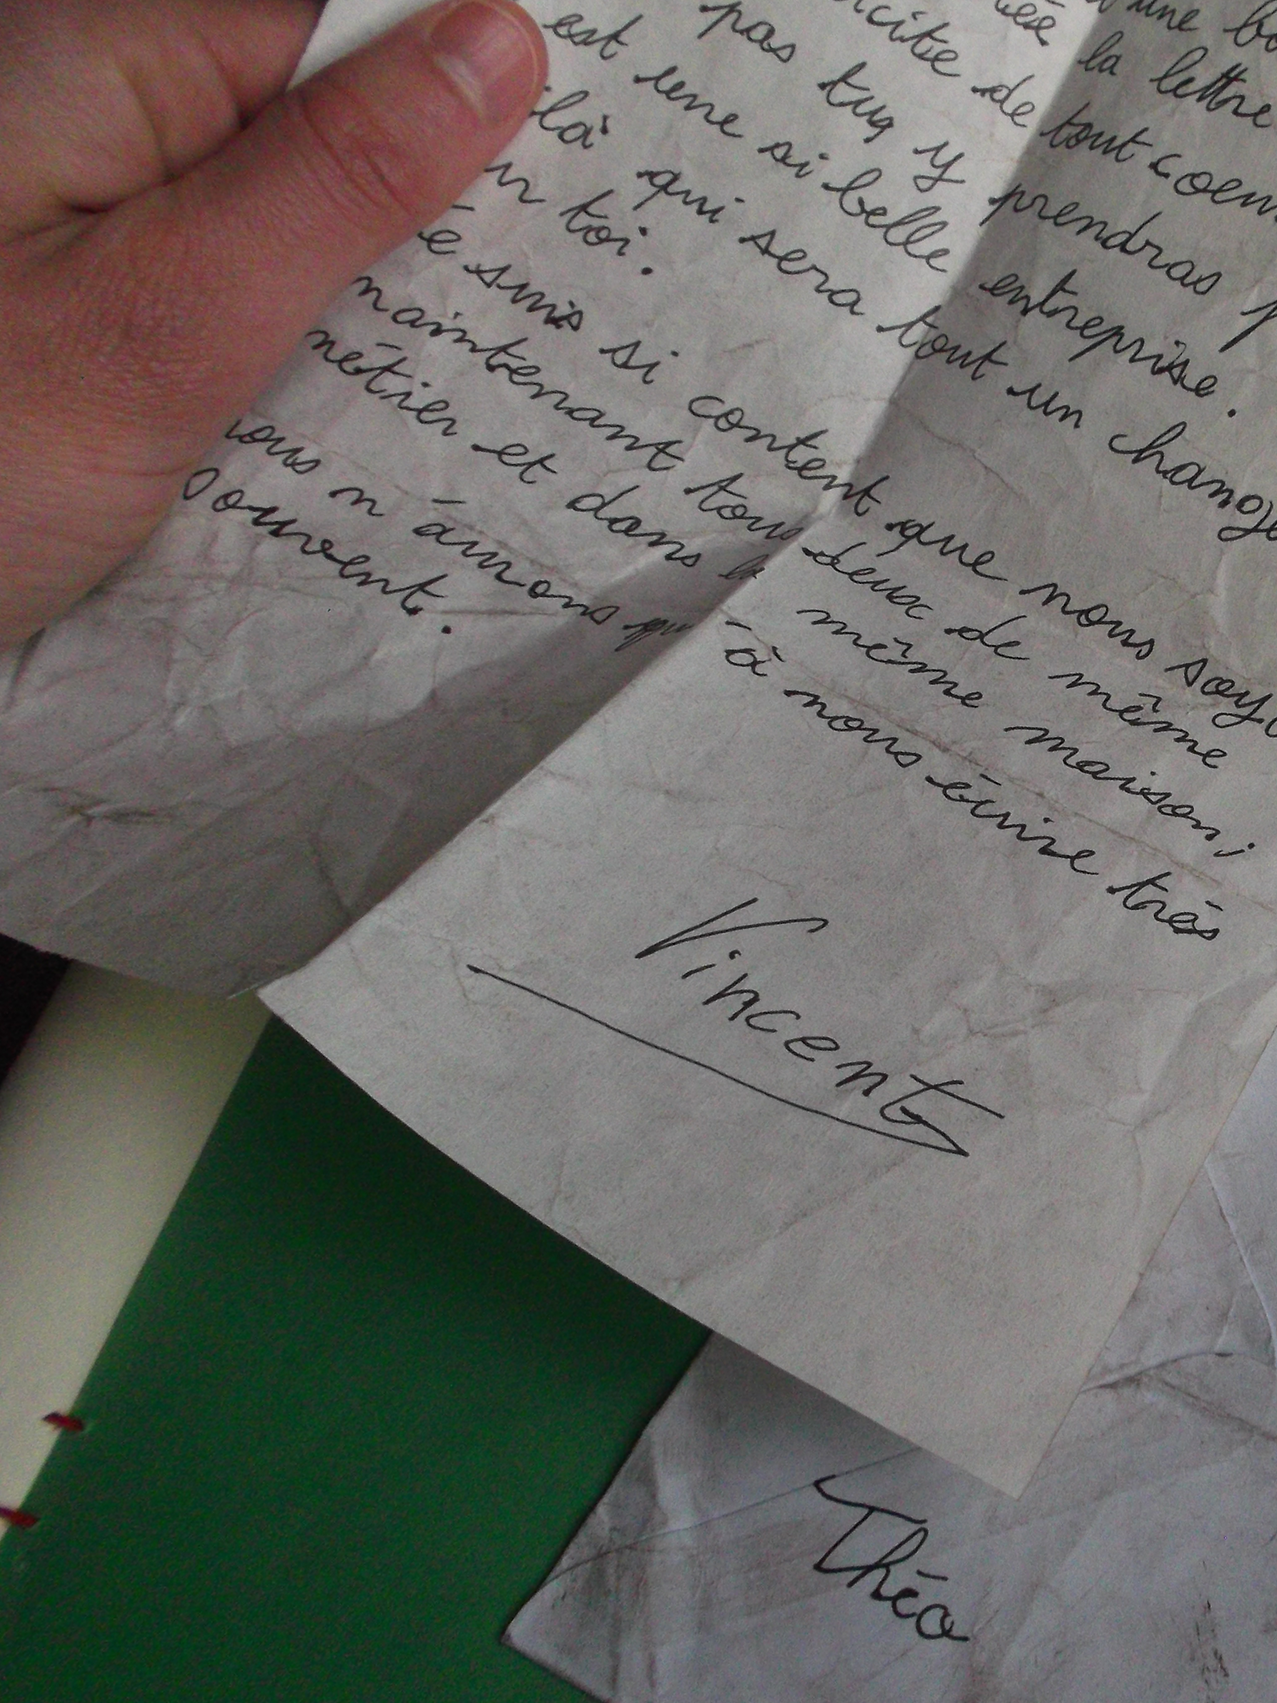 une
la lettre
de tout coeur
pas tuq y prendras
est une si belle entreprise.
qui sera tout un
toi.
suis si content que nous
maintenant tous deux de même
métier et dans la même maison;
nous n'âurons à nous écrire très
souvent.
Vincent
Théo